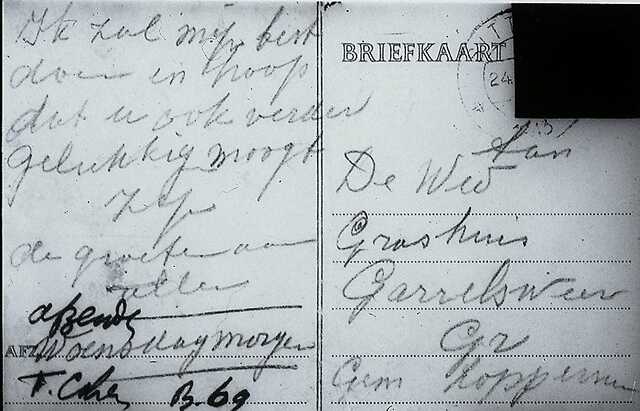 Ik zal mijn best
doen en hoop
dat u ook verder
gelukkig moogt
zijn
de groeten aan
allen
afzender
Woensdagmorgen
F. Cohen B. 69
BRIEFKAART
24
Aan
De Wed
Groshuis
Garrelsweer
Gr
Gem Loppersum